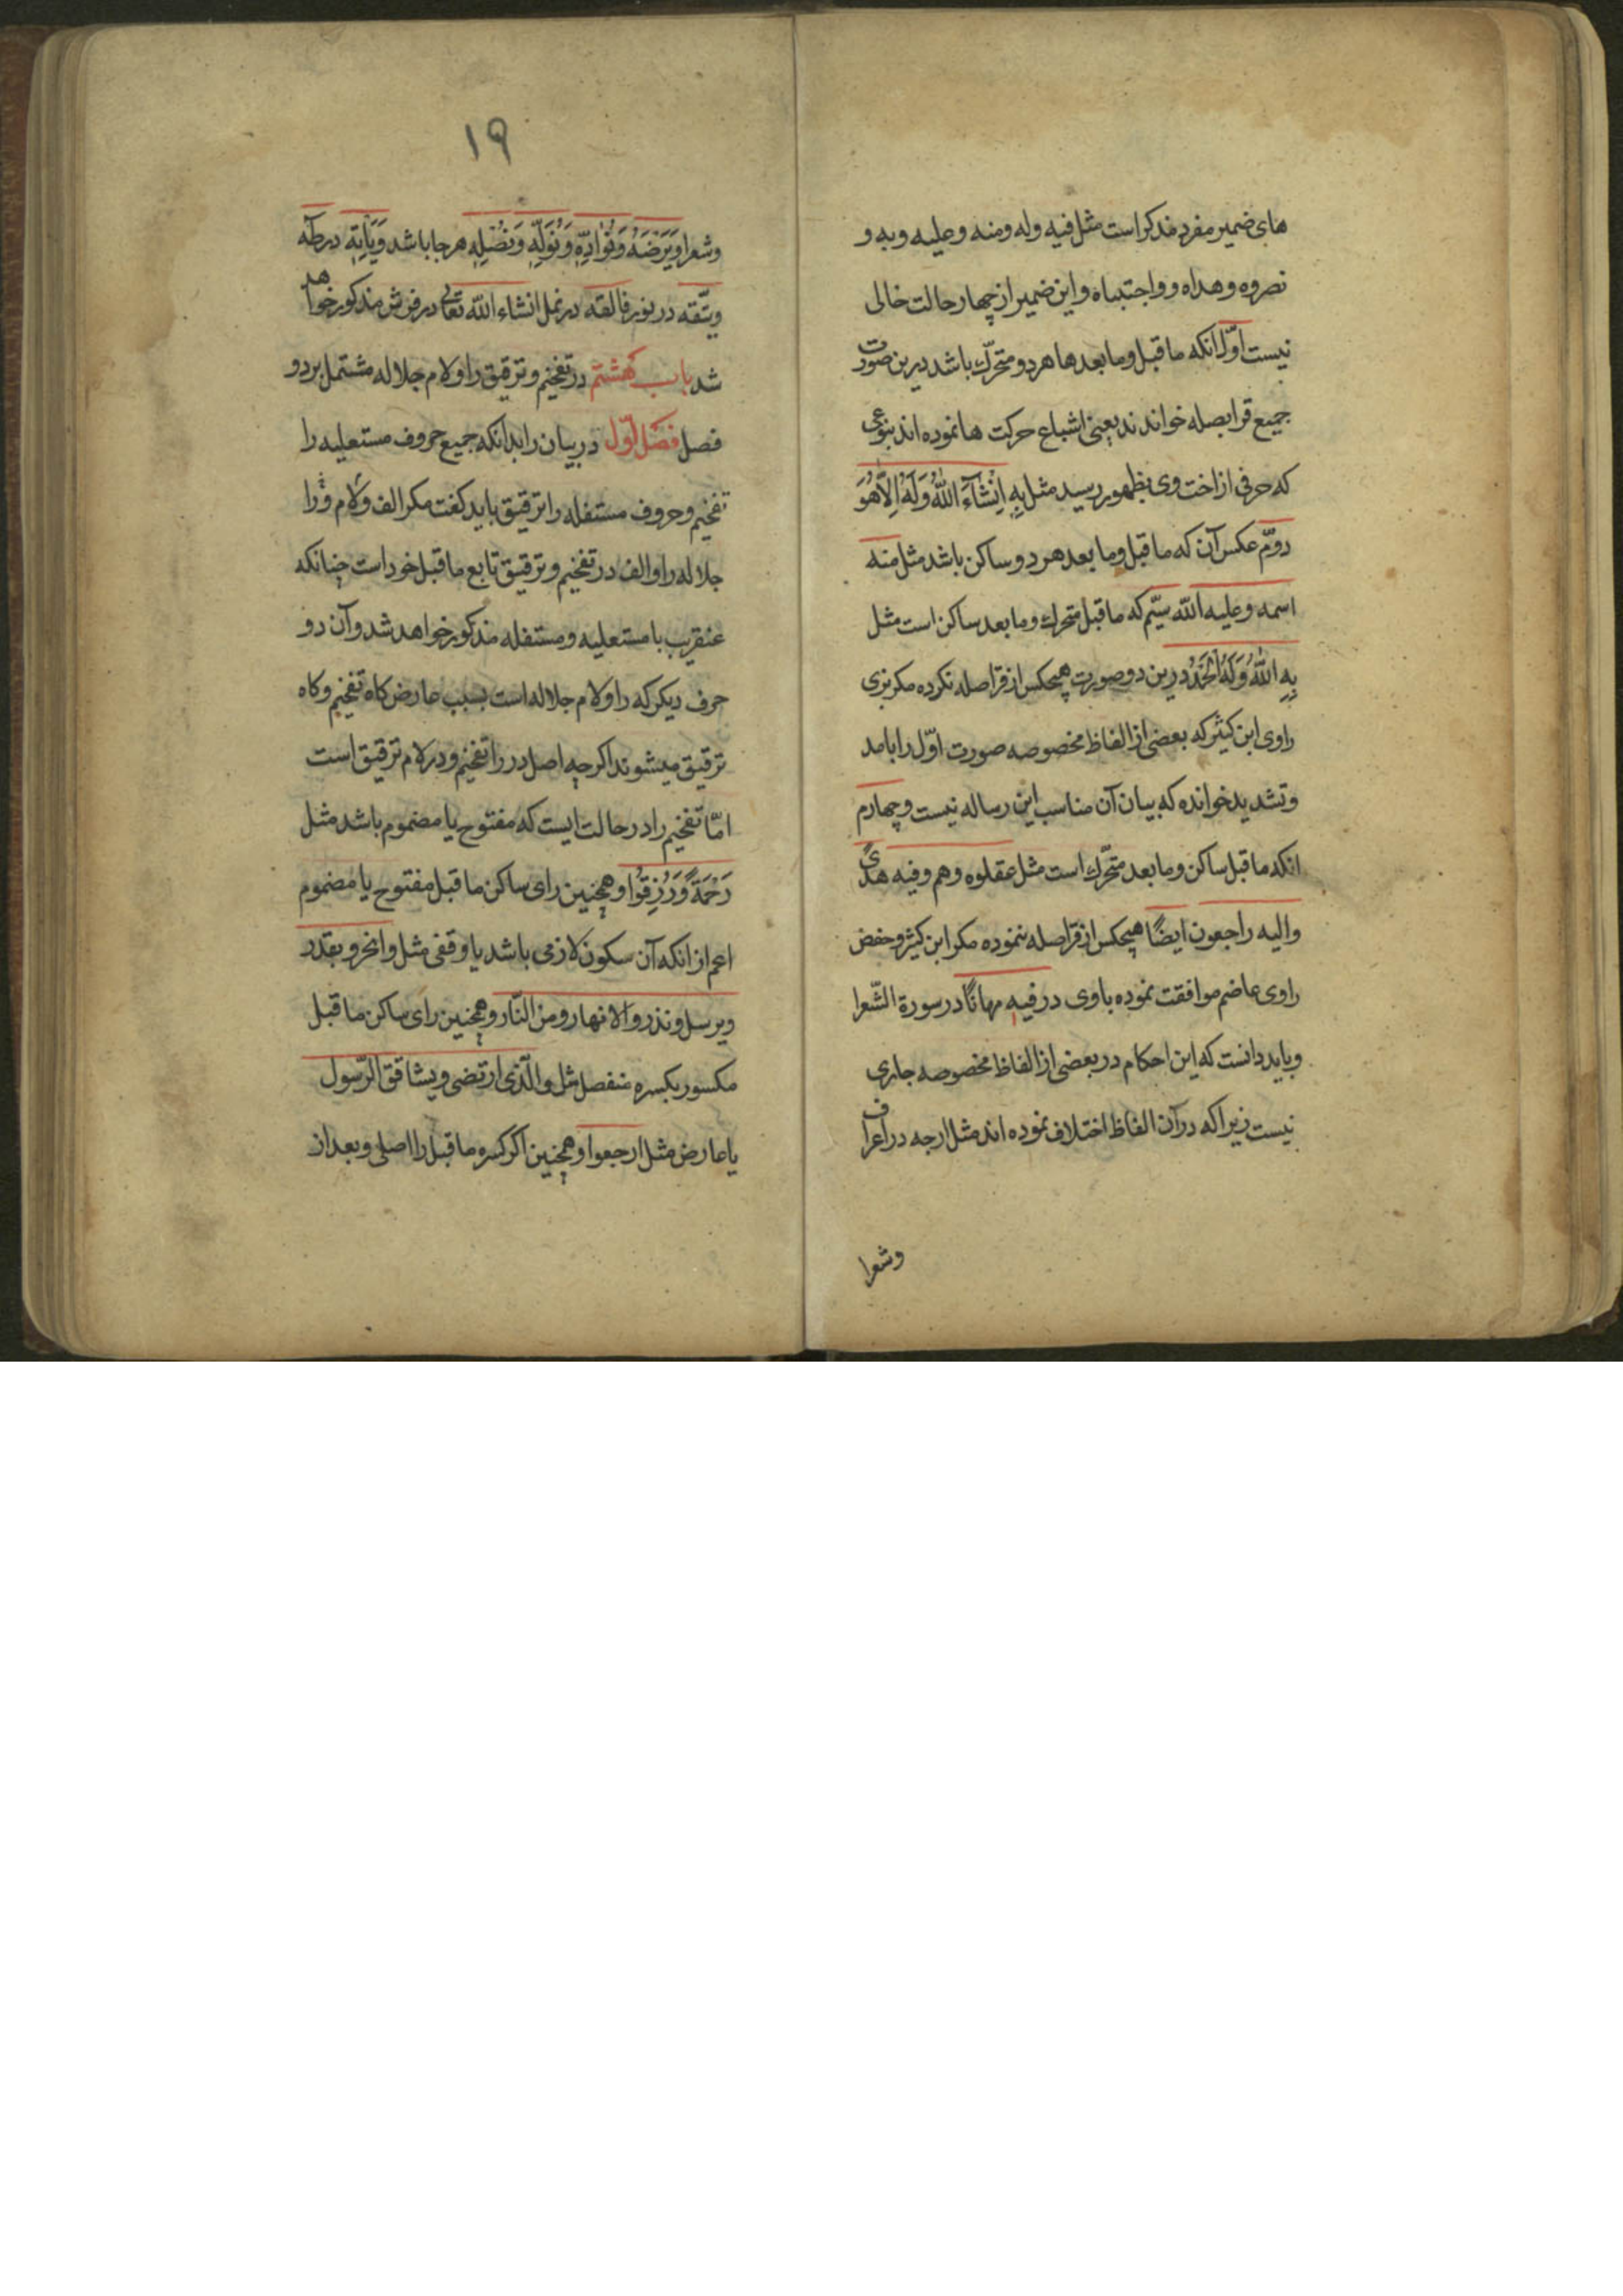 های ضمیر مفرد مذکر است مثل فیه وله ومنه وعلیه وبه و
نصروه وهداه وواجتباه واین ضمیر از چهار حالت خالی
نیست اوّل انکه ما قبل وما بعد ها هر دو متحرّك باشد درین صورت
جمیع قرا بصله خوانده‌اند یعنی اشباع حرکت ها نموده اند بنوعی
که حرفی از اخت وی بظهور رسید مثل بِهِ اِنْشَآءَ اللّٰهُ وَلَهُ اِلاَّهُوَ
دوّم عکس آن که ما قبل وما بعد هر دو ساکن باشد مثل منه
اسمه وعلیه الله سیّم که ما قبل متحرك وما بعد ساکن است مثل
بِهِ اللّٰهُ وَلَهُ الْحَمْدُ درین دو صورت هیچکس از قرا صله نکرده مکر بزی
راوی ابن کثیر که بعضی از الفاظ مخصوصه صورت اوّل را با مد
وتشدید خوانده که بیان آن مناسب این رساله نیست وچهارم
انکه ما قبل ساکن وما بعد متحرّك است مثل عقلوه وهم وفیه هدًی
والیه راجعون ایضًا هیچکس از قرا صله ننموده مکر ابن کثیر وحفص
راوی عاصم موافقت نموده باوی در فیهِ مهانًا در سورة الشّعرا
وباید دانست که این احکام در بعضی از الفاظ مخصوصه جاری
نیست زیرا که در آن الفاظ اختلاف نموده اند مثل ارجه در اعراف
وشعرا
۱۹
وشعرا وَیَرْضَهُ وَنُؤَدِّهِ وَنُوَلِّهِ وَنُصْلِهِ هر جا باشد وَیَأْتِهِ در طٓه
ویتّقه در نور فالقه در نمل انشاء الله تعالی در فرش مذکور خواهد
شد باب هشتم در تفخیم وترقیق را ولام جلاله مشتمل بر دو
فصل فصل اوّل در بیان را بدانکه جمیع حروف مستعلیه را
تفخیم وحروف مستفله را ترقیق باید کفت مکر الف ولام و را
جلاله را والف در تفخیم وترقیق تابع ما قبل خود است چنانکه
عنقریب با مستعلیه ومستفله مذکور خواهد شد وآن دو
حرف دیکر که را ولام جلاله است بسبب عارض کاه تفخیم وکاه
ترقیق میشوند اکرچه اصل در را تفخیم ودر لام ترقیق است
امّا تفخیم را در حالت ایست که مفتوح یا مضموم باشد مثل
رَحْمَةً وَرُزِقُوا وهمچنین رای ساکن ما قبل مفتوح یا مضموم
اعم از انکه آن سکون لازمی باشد یا وقفی مثل وانحر وبقدر
ویرسل ونذر والانهار ومن النّار وهمچنین رای ساکن ما قبل
مکسور بکسره منفصل مثل والّذی ارتضی ویشاقق الرّسول
یا عارض مثل ارجعوا وهمچنین اکر کسره ما قبل را اصلی وبعد از